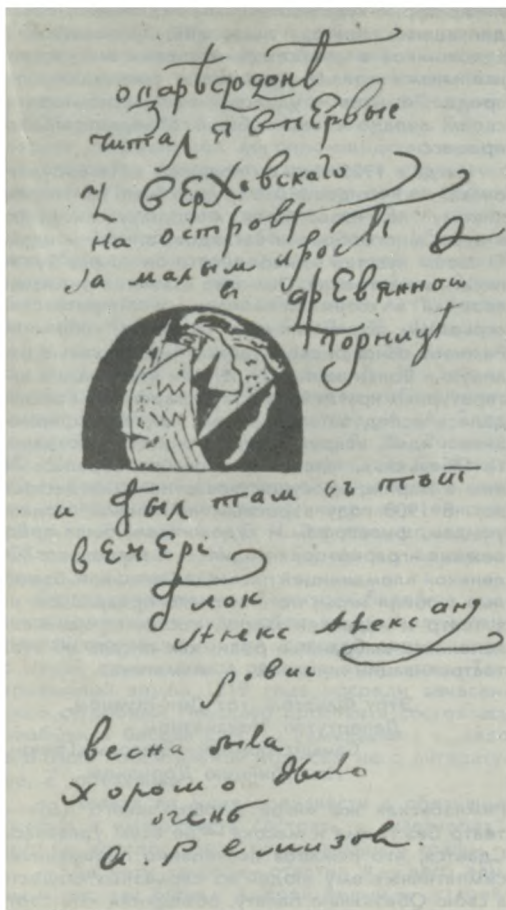 о царѣ додонѣ
читал я впервые
у вЕрХовскаго
на островѣ
за малым
в дрЕвянной
горницѣ
и был там въ тотъ
вЕчЕръ
Блок
Алекс Александ
рович
весна была
хорошо было
очень
А. Ремизов.